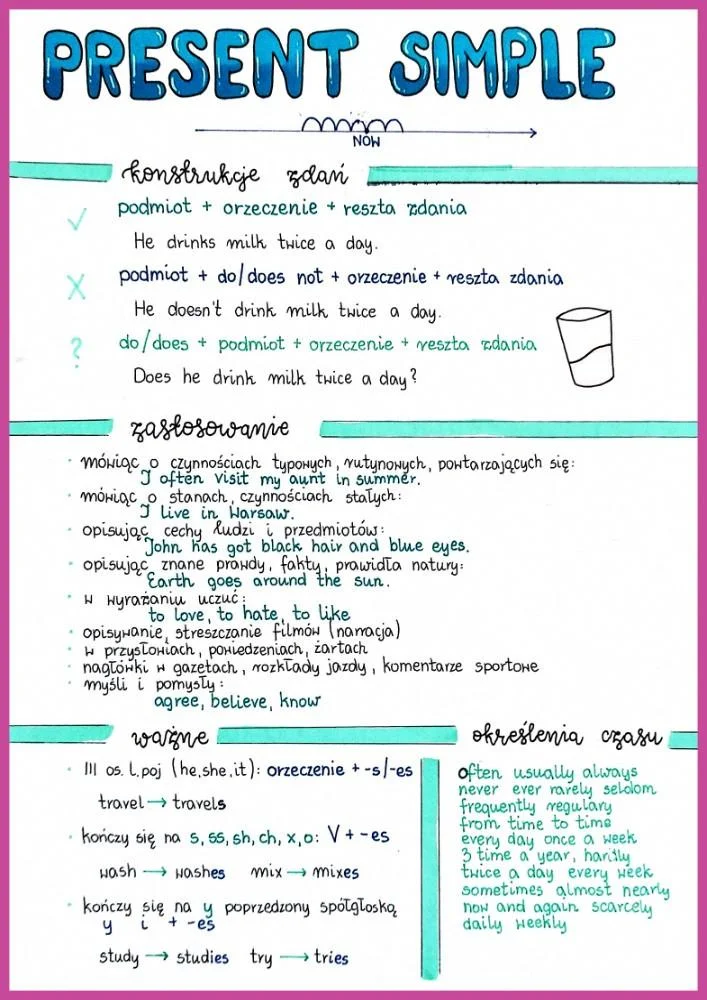 PRESENT SIMPLE
NOW
konstrukcje zdań
✓ podmiot + orzeczenie + reszta zdania
He drinks milk twice a day.
X podmiot + do/does not + orzeczenie + reszta zdania
He doesn't drink milk twice a day.
? do/does + podmiot + orzeczenie + reszta zdania
Does he drink milk twice a day?
zastosowanie
• mówiąc o czynnościach typowych, rutynowych, powtarzających się:
I often visit my aunt in summer.
• mówiąc o stanach, czynnościach stałych:
I live in Warsaw.
• opisując cechy ludzi i przedmiotów:
John has got black hair and blue eyes.
• opisując znane prawdy, fakty, prawidła natury:
Earth goes around the sun.
• w wyrażaniu uczuć:
to love, to hate, to like
• opisywanie, streszczanie filmów (narracja)
• w przysłowiach, powiedzeniach, żartach
• nagłówki w gazetach, rozkłady jazdy, komentarze sportowe
• myśli i pomysły:
agree, believe, know
ważne
• III os. l.poj (he, she, it): orzeczenie + -s/-es
travel → travels
• kończy się na s, ss, sh, ch, x, o: V + -es
wash → washes mix → mixes
• kończy się na y poprzedzony spółgłoską
y i + -es
study → studies try → tries
określenia czasu
often usually always
never ever rarely seldom
frequently regulary
from time to time
every day once a week
3 time a year, hardly
twice a day every week
sometimes almost nearly
now and again scarcely
daily weekly